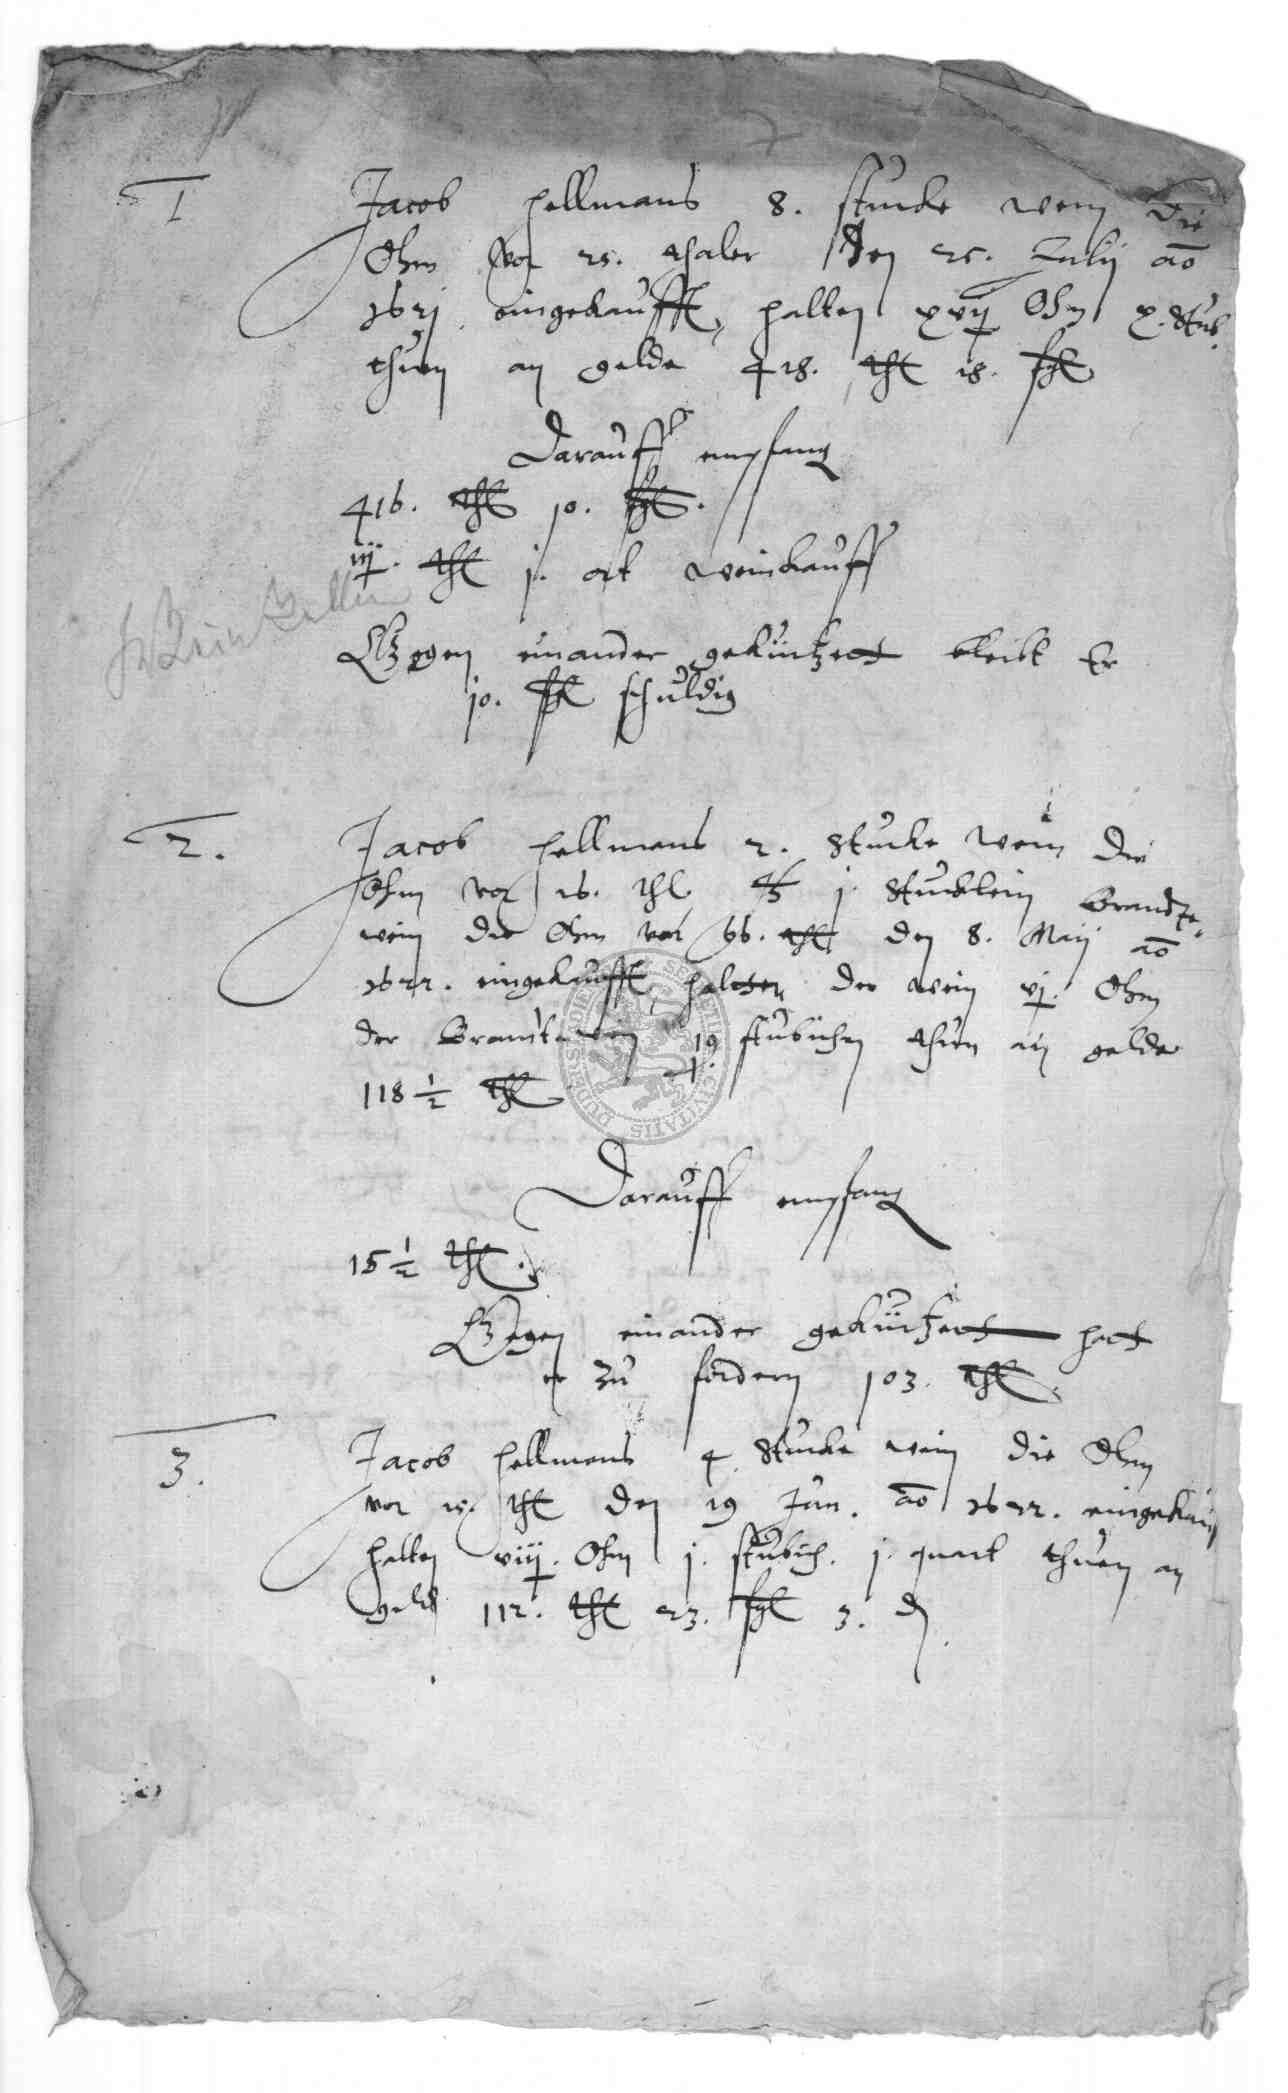 7
1 Jacob Hellmans 8. stucke wein die
Ohm vor 25. thaler den 25. Julij ao
1621 eingekaufft, halten xvij Ohm x. Stub.
thuen an gelde 428. thl 18. ßgl
Darauff empfang
416. thl 10. ßgl.
iij. thl j. ort weinkauff
Gegen einander gekürtzett bleibt Er
10. ßgl schuldig
2. Jacob Hellmans 2. Stucke wein die
Ohm vor 16. thl j. Stucklein Brandte
wein die Ohm vor 66. thl den 8. Maij ao
1622. eingekaufft haltten der wein vj. Ohm
der Brandtewein 19 stübichen thuen an gelde
118 1/2 thl
Darauff empfang
15 1/2 thl.
Gegen einander gekürtzett hatt
er zu fordern 103. thl.
3. Jacob Hellmans 4 Stucke wein die Ohm
vor 15. thl den 19 Jun. ao 1622. eingekauff
halten viij. Ohm j. stübich. j. quart thuen an
geld 112. thl 23. ßgl 3. d
SIGILLUM DUDERSTADIENSIS CIVITATIS